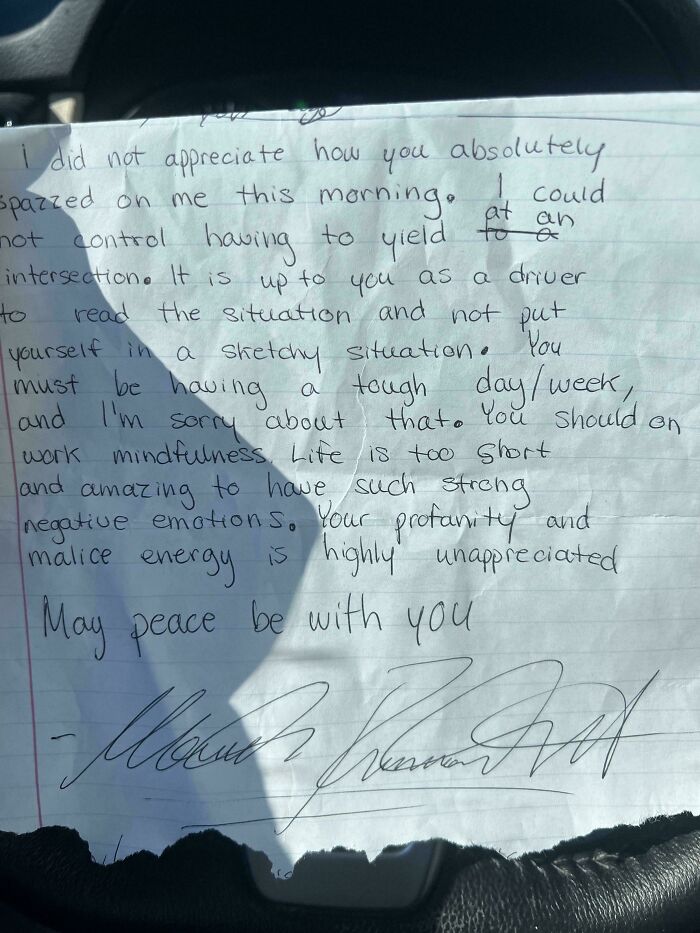 i did not appreciate how you absolutely
spazzed on me this morning. I could
at an
not control having to yield to a
intersection. It is up to you as a driver
to read the situation and not put
yourself in a sketchy situation. You
must be having a tough day/week,
and I'm sorry about that. You should on
work mindfulness. Life is too short
and amazing to have such strong
negative emotions. Your profanity and
malice energy is highly unappreciated
May peace be with you